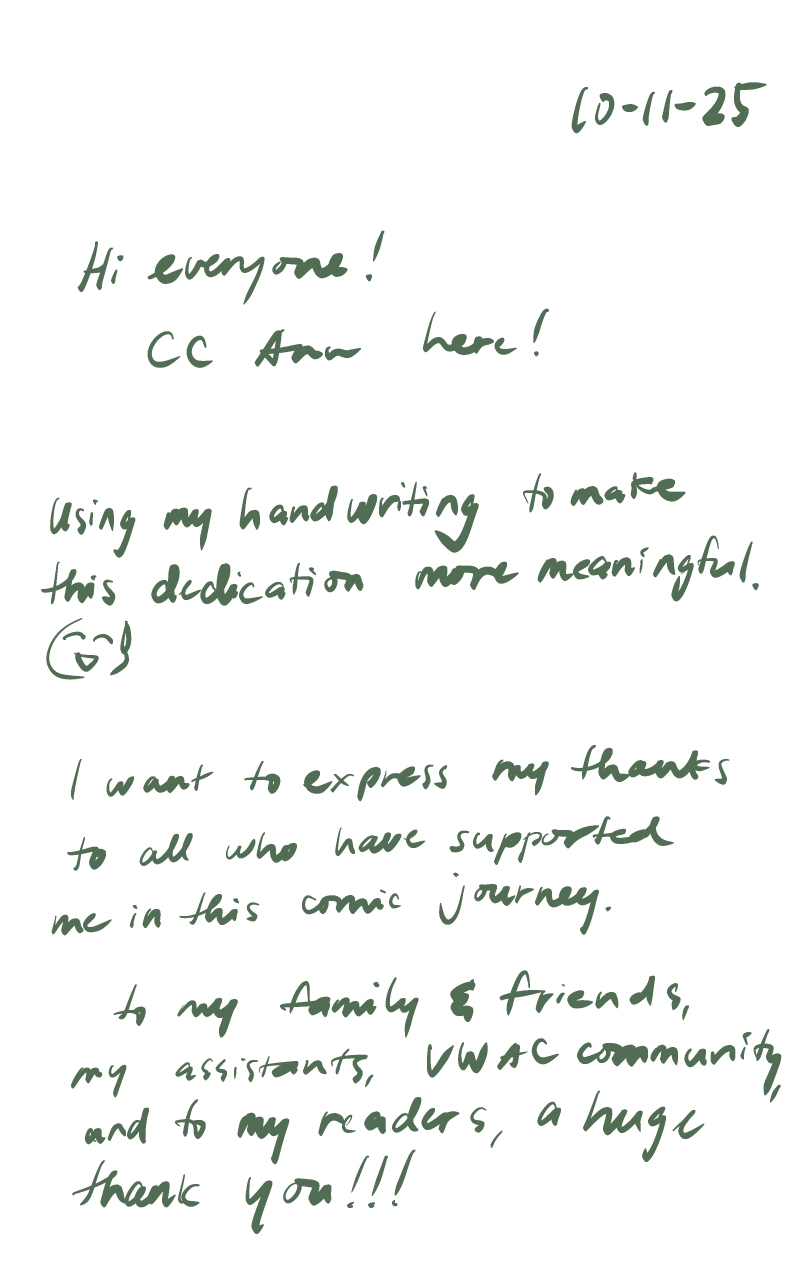 10-11-25
Hi everyone!
CC Ann here!
Using my handwriting to make
this dedication more meaningful.
I want to express my thanks
to all who have supported
me in this comic journey.
to my family & friends,
my assistants, VWAC community,
and to my readers, a huge
thank you!!!